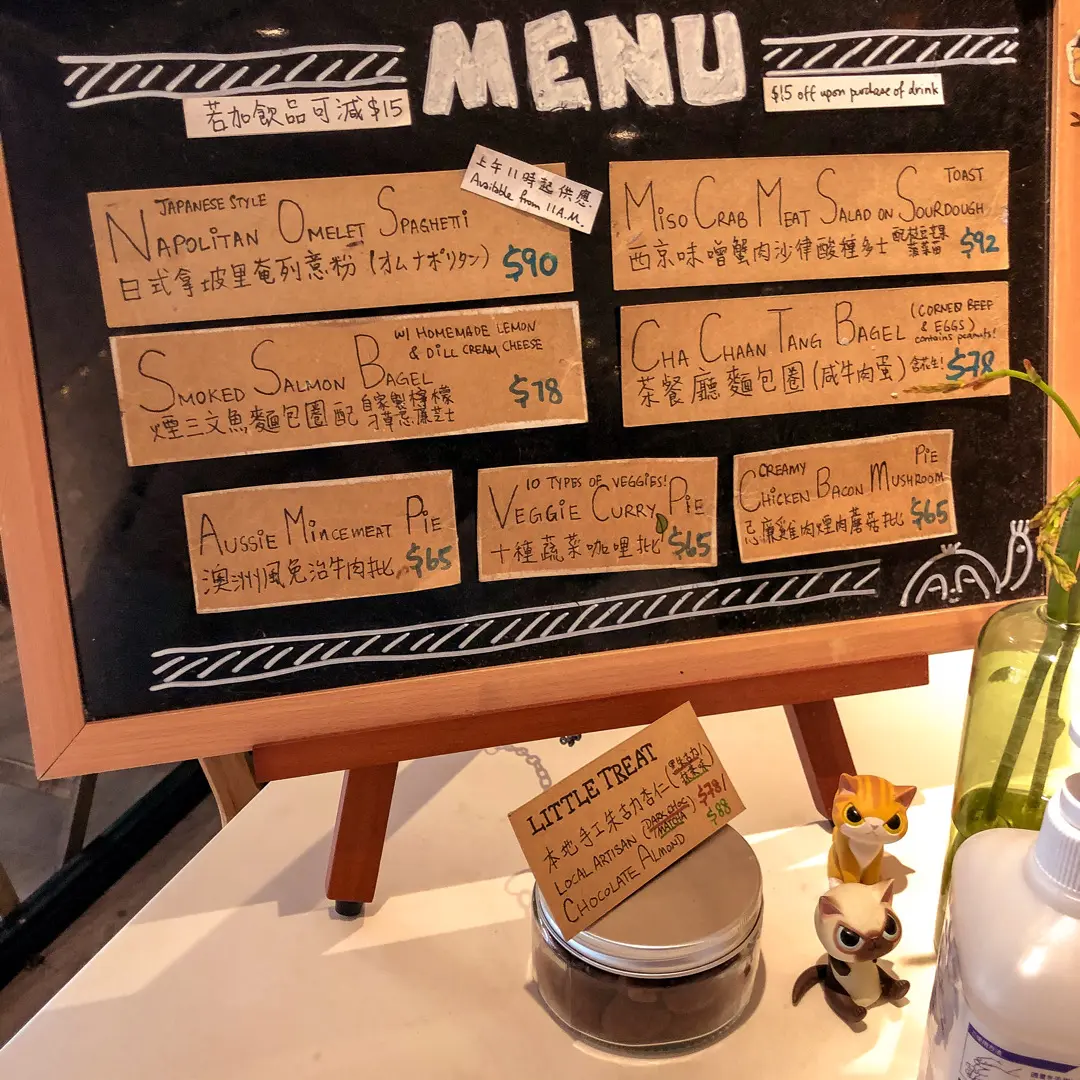 MENU
若加飲品可減$15
$15 off upon purchase of drink
上午11時起供應
Available from 11A.M.
JAPANESE STYLE
NAPOLITAN OMELET SPAGHETTI
日式拿坡里奄列意粉 (オムナポリタン) $90
TOAST
MISO CRAB MEAT SALAD ON SOURDOUGH
西京味噌蟹肉沙律酸種多士 $92
W/ HOMEMADE LEMON
& DILL CREAM CHEESE
SMOKED SALMON BAGEL
煙三文魚麵包圈配 自家製檸檬
刁草忌廉芝士
$78
(CORNED BEEF
& EGGS)
contains peanuts!
CHA CHAAN TANG BAGEL
茶餐廳麵包圈(咸牛肉蛋) 含花生! $78
AUSSIE MINCEMEAT PIE
澳洲風免治牛肉批 $65
10 TYPES OF VEGGIES!
VEGGIE CURRY PIE
十種蔬菜咖哩批 $65
CREAMY PIE
CHICKEN BACON MUSHROOM
忌廉雞肉煙肉蘑菇批 $65
LITTLE TREAT
本地手工朱古力杏仁
LOCAL ARTISAN (DARK CHOC
/ MATCHA)
CHOCOLATE ALMOND
$78/
$88